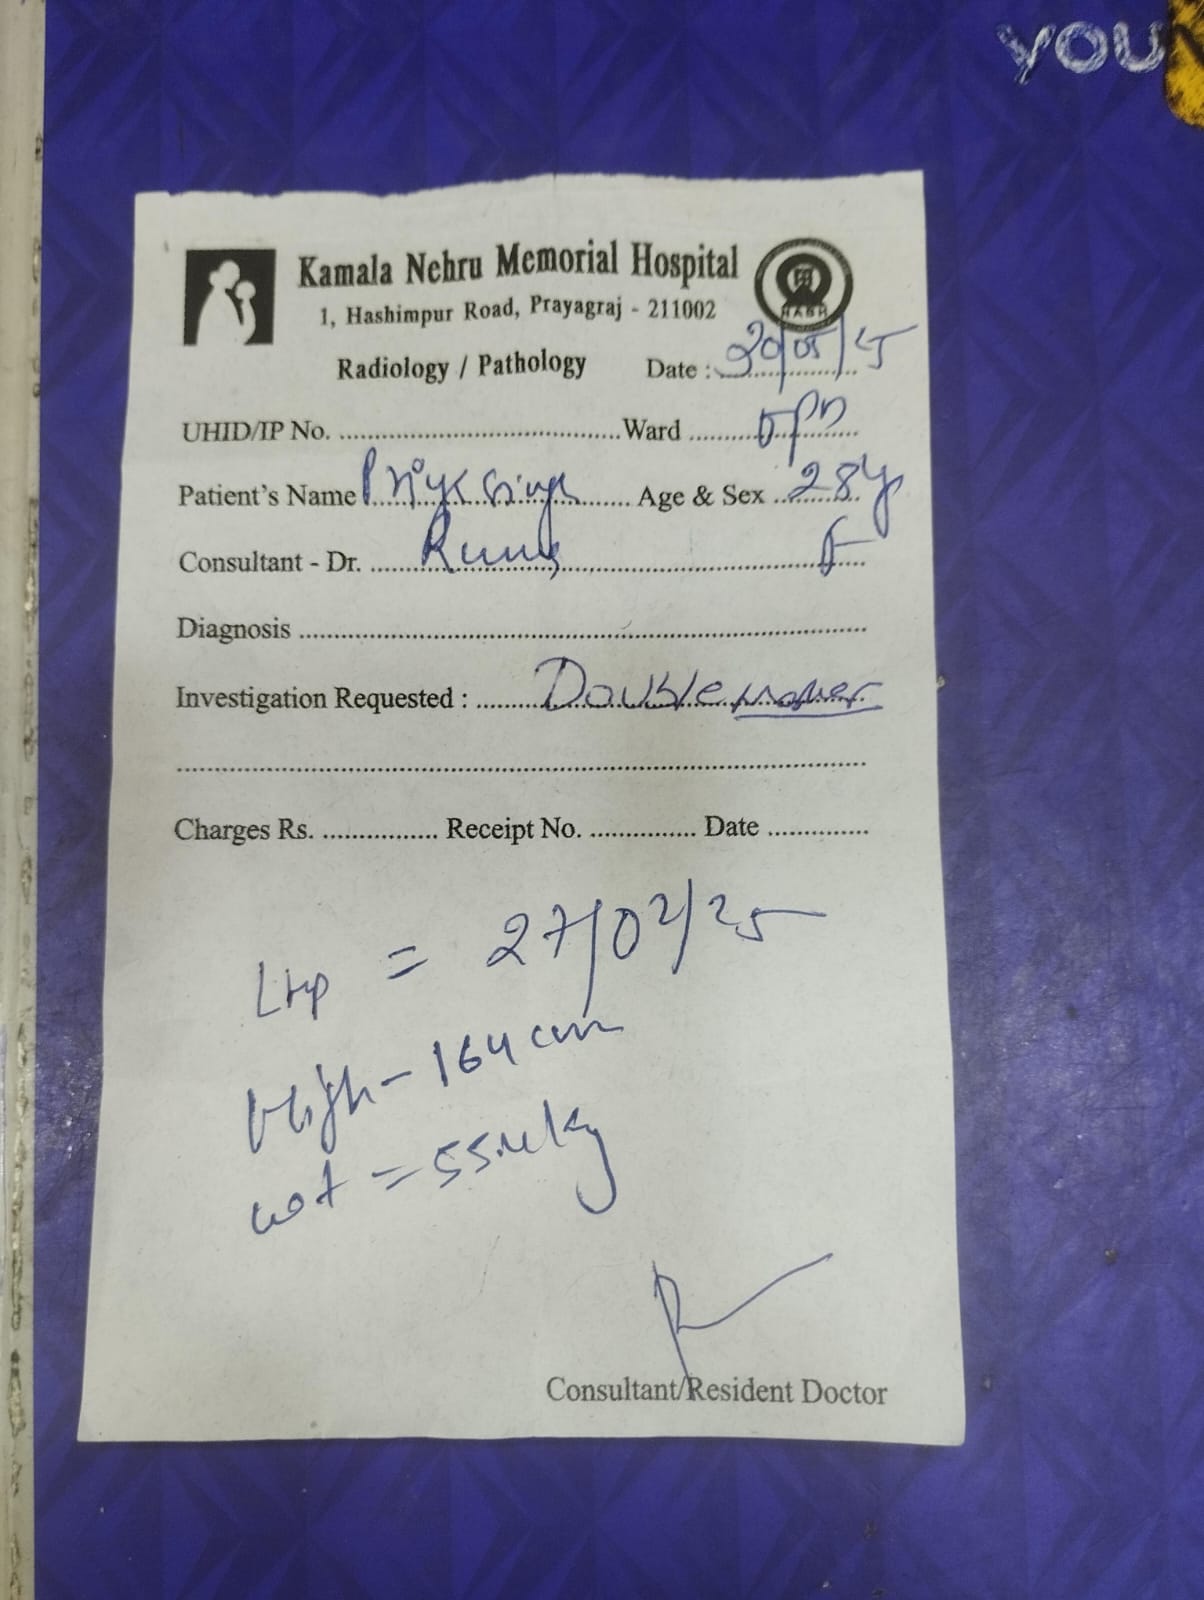 YOU
Kamala Nehru Memorial Hospital
1, Hashimpur Road, Prayagraj - 211002
Radiology / Pathology Date : 20/05/25
UHID/IP No. ........ Ward ........ OPD
Patient's Name ........ Singh ........ Age & Sex 28y
Consultant - Dr. ........ F
Diagnosis ........
Investigation Requested : ........ Double marker
Charges Rs. ........ Receipt No. ........ Date ........
Lmp = 27/02/25
High - 164 cm
wt = 55.4kg
Consultant/Resident Doctor